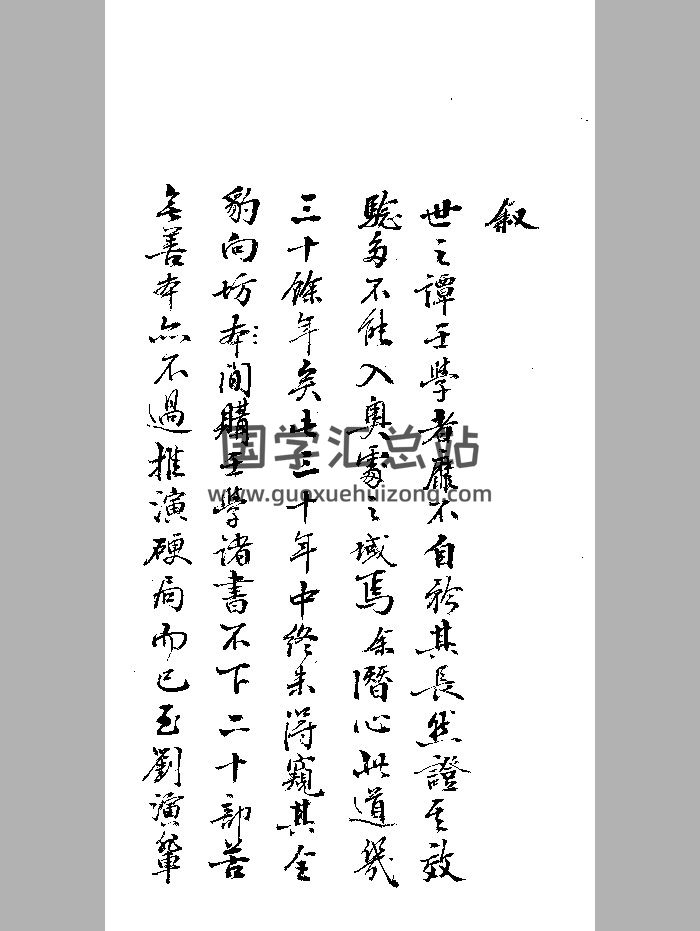 叙
世之譚壬學者靡不自矜其長然證其效
驗多不能入奧窔之域焉余潛心此道幾
三十餘年矣此三十年中終未得窺其全
豹向坊本間購壬學諸書不下二十部苦
無善本亦不過推演硬局而已至劉演輩
国学汇总站
www.guoxuehuizong.com